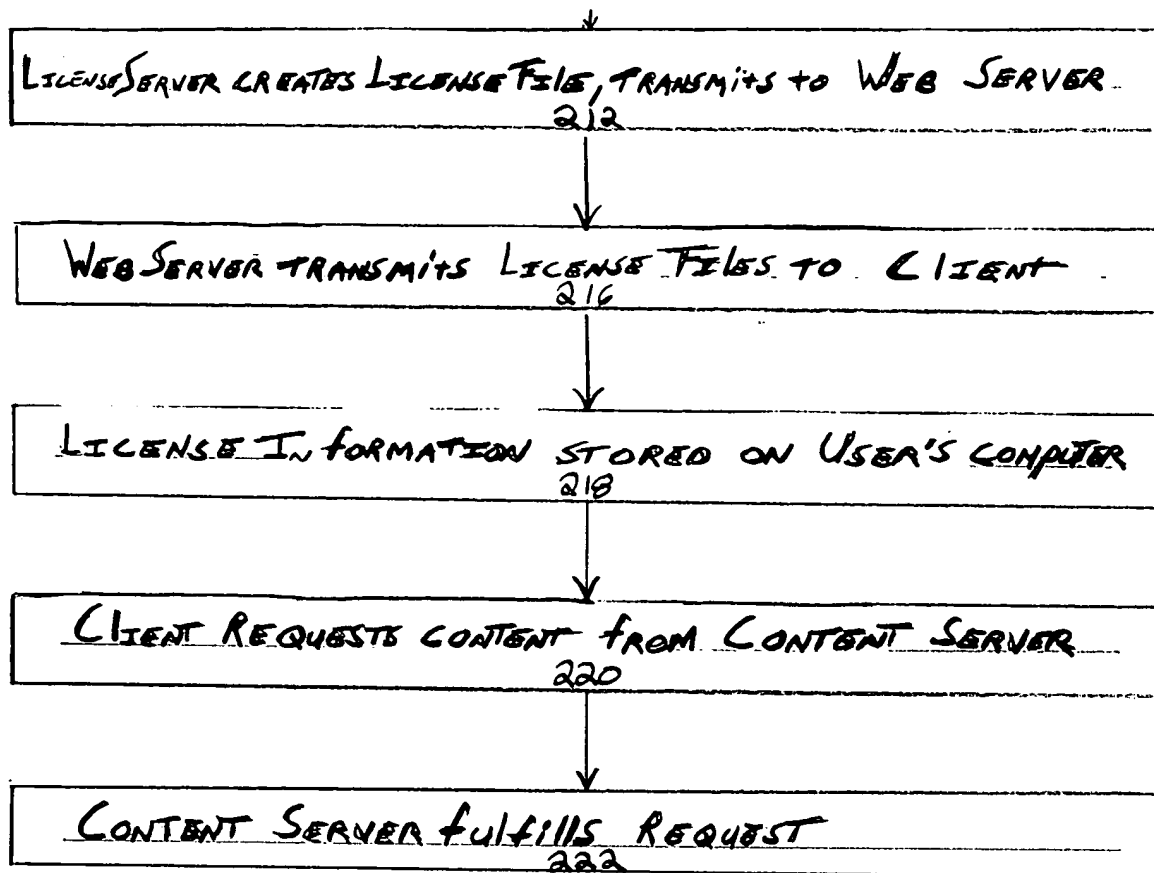 LICENSE SERVER CREATES LICENSE FILE, TRANSMITS TO WEB SERVER
212
WEB SERVER TRANSMITS LICENSE FILES TO CLIENT
216
LICENSE INFORMATION STORED ON USER'S COMPUTER
218
CLIENT REQUESTS CONTENT FROM CONTENT SERVER
220
CONTENT SERVER fulfills REQUEST
222